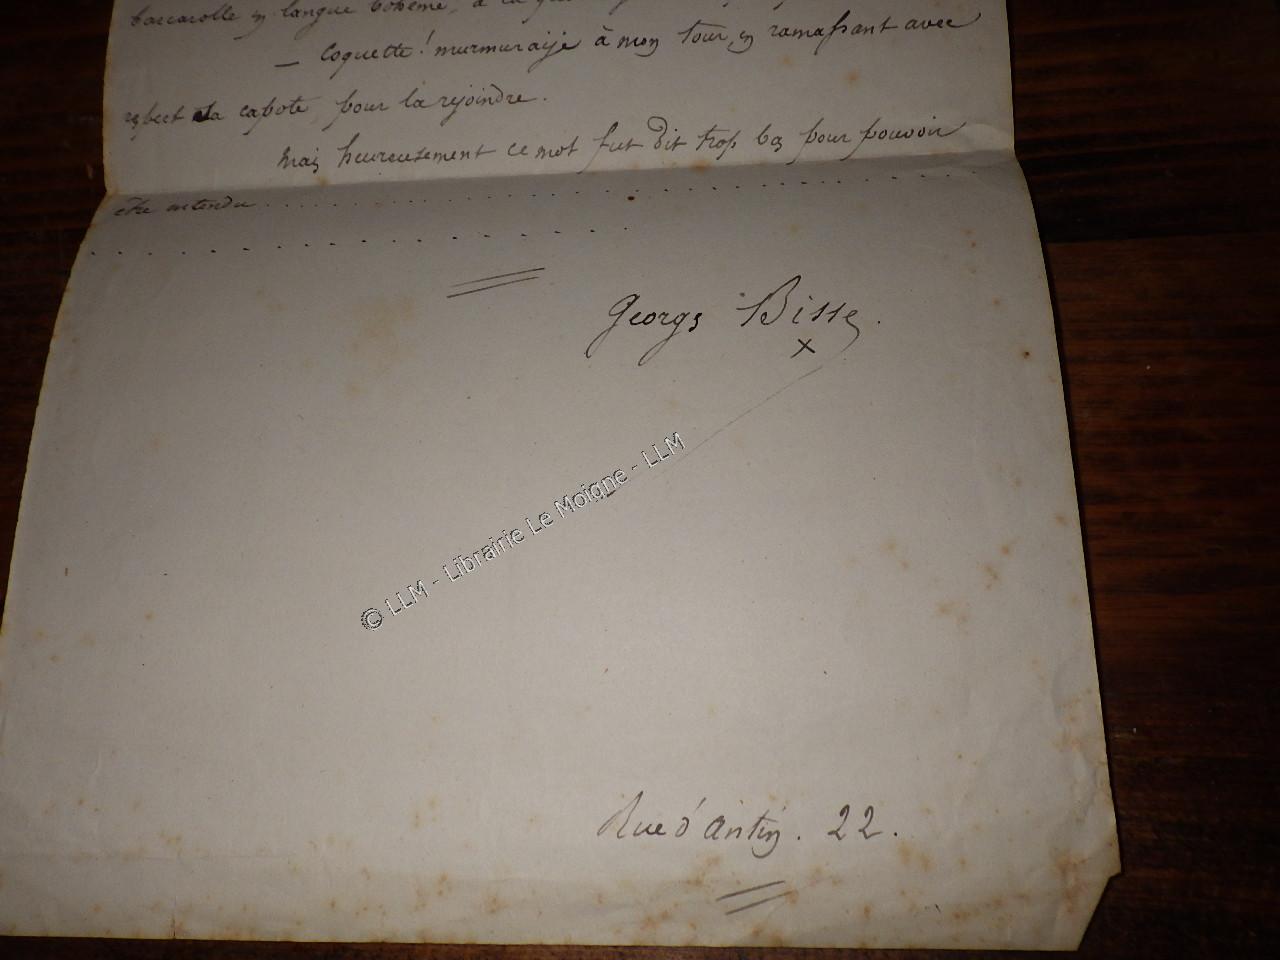 barcarolle en langue bohême, à la
— Coquette! murmuraije à mon tour, en ramassant avec
respect sa capote, pour la rejoindre.
Mais heureusement ce mot fut dit trop bas pour pouvoir
être entendu . . . . . . . . . . . . . . . . . . . . . . . . . . . .
. . . . . . . . . . . . . . . . . .
Georges Bisse.
x
© LLM - Librairie Le Moigne - LLM
Rue d'antin. 22.